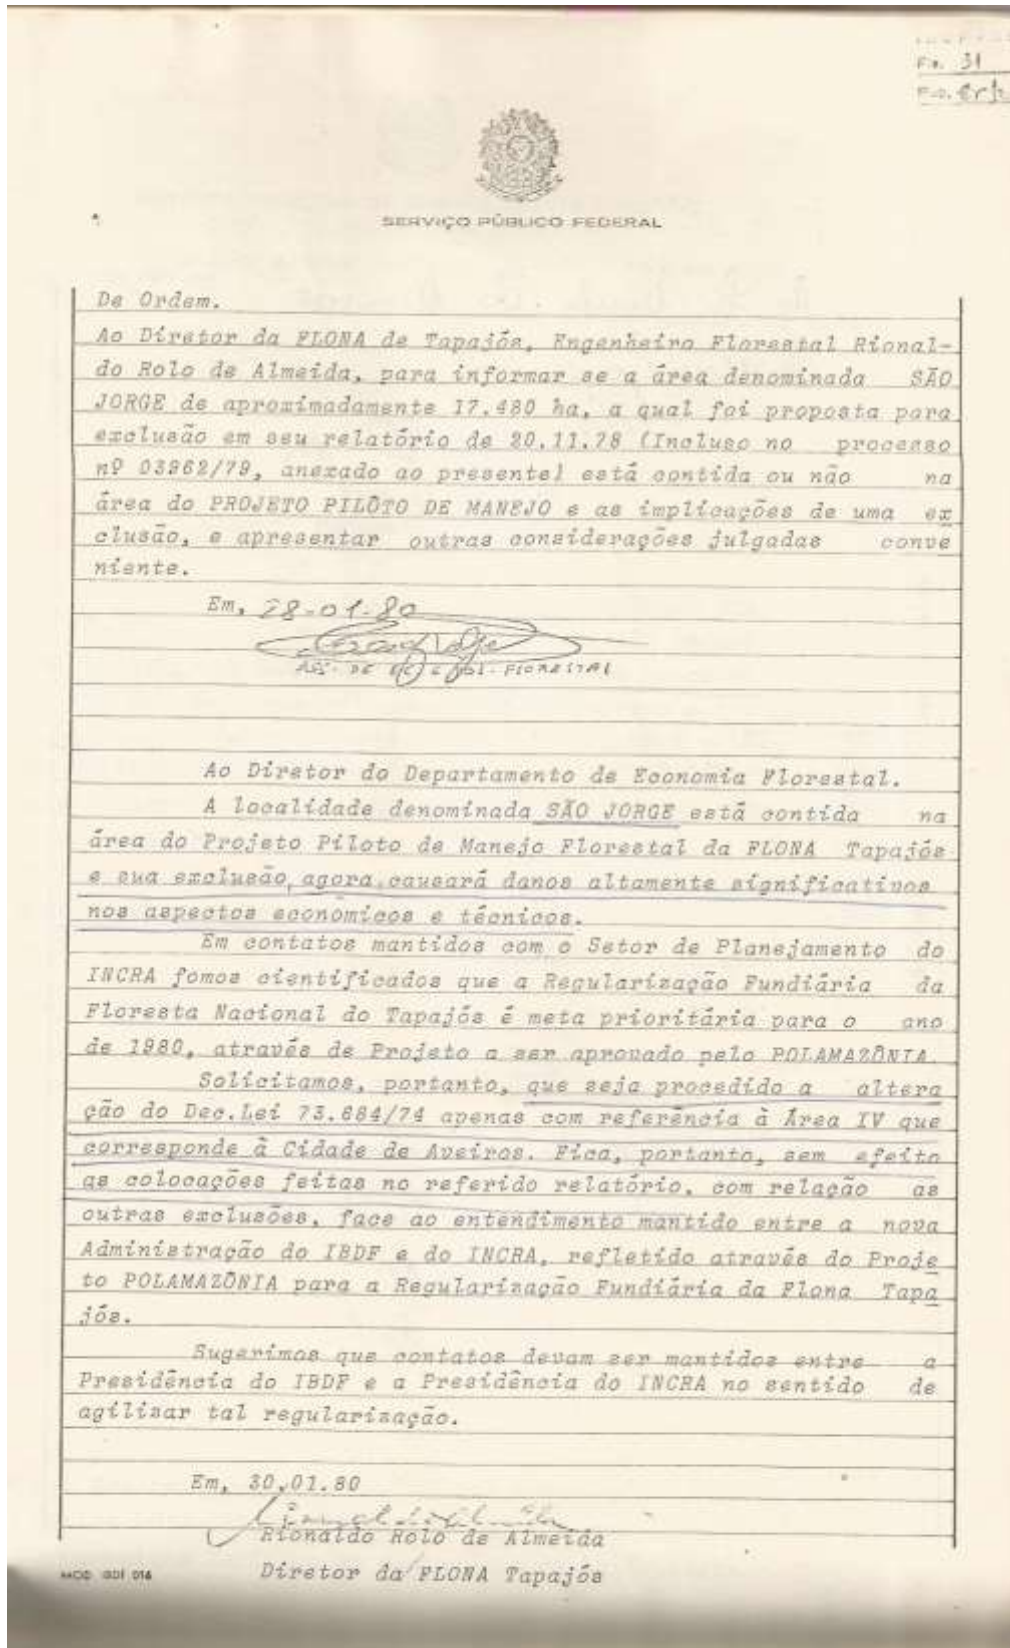 Fls. 31
SERVIÇO PÚBLICO FEDERAL
De Ordem.
Ao Diretor da FLONA de Tapajós, Engenheiro Florestal Rional-
do Rolo de Almeida, para informar se a área denominada SÃO
JORGE de aproximadamente 17.480 ha, a qual foi proposta para
exclusão em seu relatório de 20.11.78 (Incluso no processo
nº 03962/79, anexado ao presente) está contida ou não na
área do PROJETO PILÔTO DE MANEJO e as implicações de uma ex
clusão, e apresentar outras considerações julgadas conve
niente.
Em, 28-01-80
FLORESTAL
Ao Diretor do Departamento de Economia Florestal.
A localidade denominada SÃO JORGE está contida na
área do Projeto Piloto de Manejo Florestal da FLONA Tapajós
e sua exclusão, agora, causará danos altamente significativos
nos aspectos econômicos e técnicos.
Em contatos mantidos com o Setor de Planejamento do
INCRA fomos cientificados que a Regularização Fundiária da
Floresta Nacional do Tapajós é meta prioritária para o ano
de 1980, através de Projeto a ser aprovado pelo POLAMAZÔNIA.
Solicitamos, portanto, que seja procedido a altera
ção do Dec.Lei 73.684/74 apenas com referência à Área IV que
corresponde à Cidade de Aveiros. Fica, portanto, sem efeito
as colocações feitas no referido relatório, com relação as
outras exclusões, face ao entendimento mantido entre a nova
Administração do IBDF e do INCRA, refletido através do Proje
to POLAMAZÔNIA para a Regularização Fundiária da Flona Tapa
jós.
Sugerimos que contatos devam ser mantidos entre a
Presidência do IBDF e a Presidência do INCRA no sentido de
agilizar tal regularização.
Em, 30.01.80
Rionaldo Rolo de Almeida
Diretor da FLONA Tapajós
MOD. GDI 016